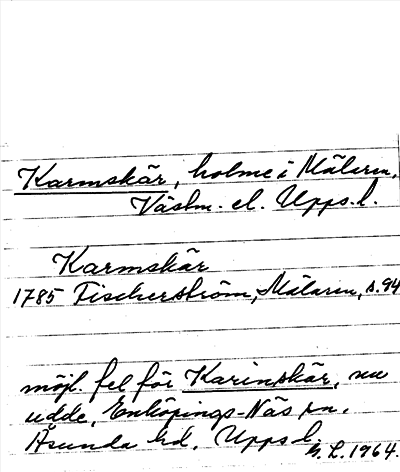 Karmskär, holme i Mälaren,
Västm. el. Upps. l.
Karmskär
1785 Fischerström, Mälaren, s. 94
möjl. fel för Karinskär, nu
udde, Enköpings-Näs sn.
Åsunda hd. Upps l.
G. L. 1964.